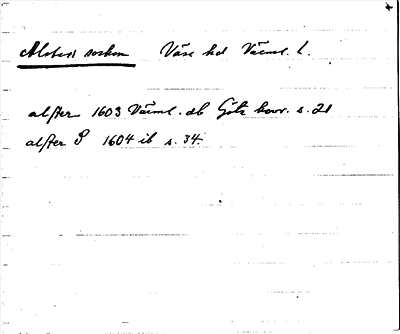 Alsters socken Väse hd Värml. l.
alster 1603 Värml. db Göta hovr. s. 21
alster P 1604 ib s. 34.